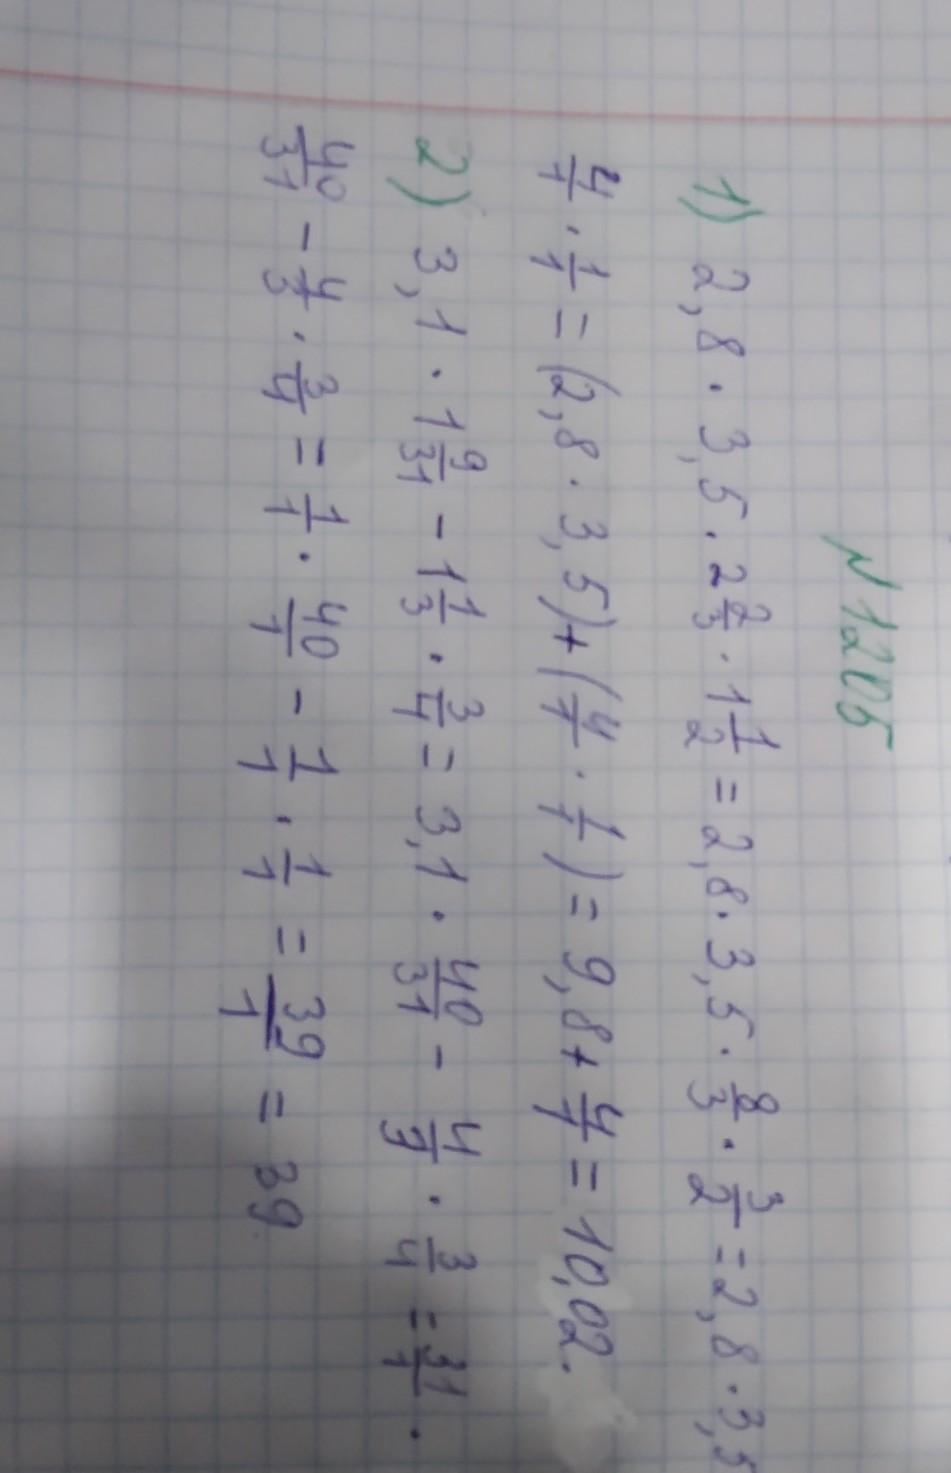 №1205
1) 2,8 · 3,5 · 2 2/3 · 1 1/2 = 2,8 · 3,5 · 8/3 · 3/2 = 2,8 · 3,5
4/1 · 1/1 = (2,8 · 3,5) + (4/1 · 1/1) = 9,8 + 4/1 = 10,02.
2) 3,1 · 1 9/31 - 1 1/3 · 3/4 = 3,1 · 40/31 - 4/3 · 3/4 = 31/1 ·
40/31 - 4/3 · 3/4 = 1/1 · 40/1 - 1/1 · 1/1 = 39/1 = 39